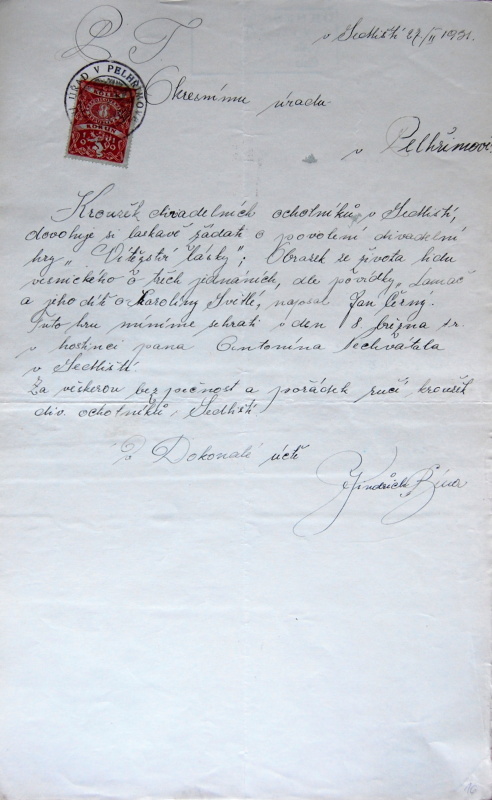 v Sedlišti 27/II 1931.
P. T.
ÚŘAD V PELHŘIMOVĚ
KOLEK
8
KORUN
Okresnímu úřadu
v Pelhřimově
Kroužek divadelních ochotníků v Sedlišti,
dovoluje si laskavě žádati o povolení divadelní
hry „Vítězství lásky“; Obrázek ze života lidu
vesnického o třech jednáních, dle povídky „Lamač
a jeho dítě“ od Karoliny Světlé, napsal Jan Černý.
Tuto hru míníme sehrati v den 8. března t.r.
v hostinci pana Antonína Nechvátala
v Sedlišti.
Za veškerou bezpečnost a pořádek ručí kroužek
div. ochotníků, Sedlišti
V Dokonalé úctě
Jindřich Bína
16